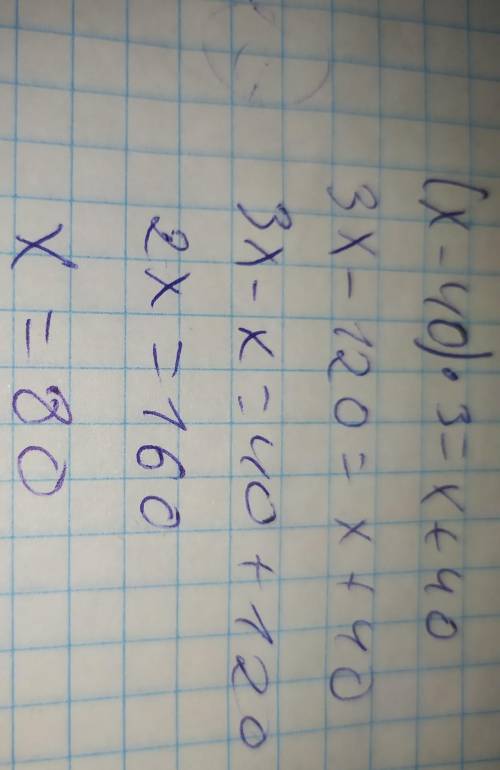 (x-40)·3=x+40
3x-120=x+40
3x-x=40+120
2x=160
x=80